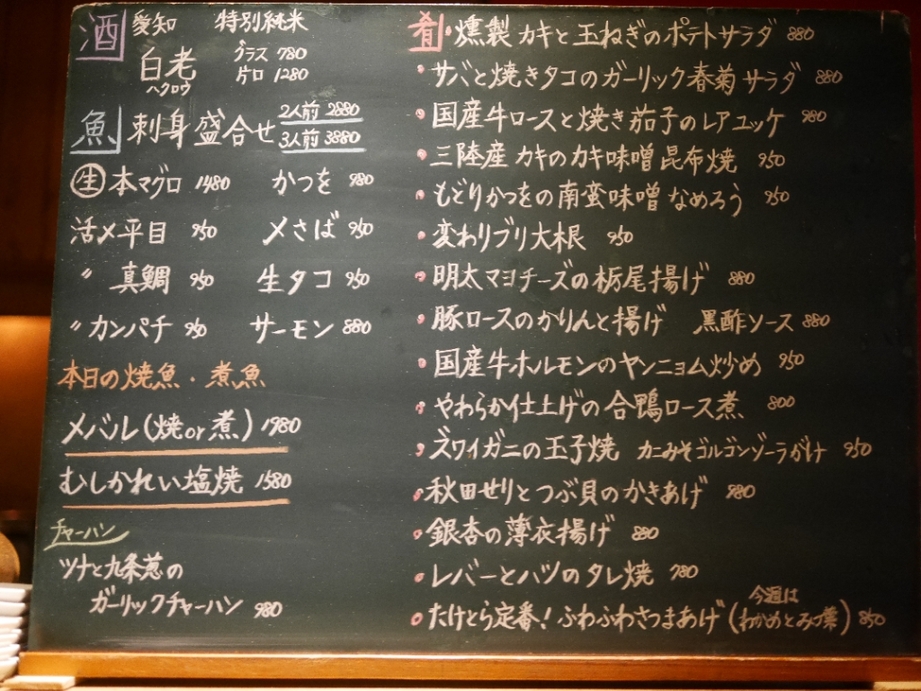 酒 愛知 特別純米
白老 グラス 780
ハクロウ 片口 1280
魚 刺身盛合せ 2人前 2880
3人前 3880
生 本マグロ 1480 かつを 980
活〆平目 950 〆さば 950
〃 真鯛 950 生タコ 950
〃 カンパチ 950 サーモン 880
本日の焼魚・煮魚
メバル(焼or煮) 1980
むしかれい塩焼 1580
チャーハン
ツナと九条葱の
ガーリックチャーハン 980
肴 ・燻製カキと玉ねぎのポテトサラダ 880
・サバと焼きタコのガーリック春菊サラダ 880
・国産牛ロースと焼き茄子のレアユッケ 980
・三陸産カキのカキ味噌昆布焼 950
・もどりかつをの南蛮味噌なめろう 950
・変わりブリ大根 950
・明太マヨチーズの栃尾揚げ 880
・豚ロースのかりんと揚げ 黒酢ソース 880
・国産牛ホルモンのヤンニョム炒め 950
・やわらか仕上げの合鴨ロース煮 800
・ズワイガニの玉子焼 カニみそゴルゴンゾーラがけ 950
・秋田せりとつぶ貝のかきあげ 980
・銀杏の薄衣揚げ 880
・レバーとハツのタレ焼 780
今週は
・たけとら定番!ふわふわさつまあげ(わかめとみつ葉) 850